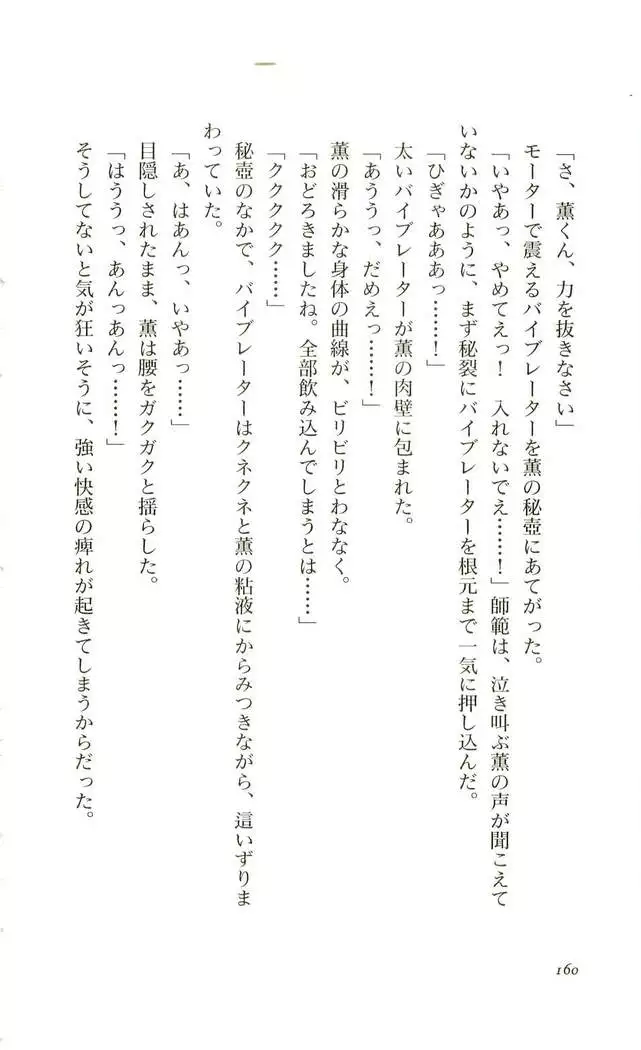 「さ、薫くん、力を抜きなさい」
モーターで震えるバイブレーターを薫の秘壺にあてがった。
「いやあっ、やめてえっ！　入れないでえ……！」師範は、泣き叫ぶ薫の声が聞こえて
いないかのように、まず秘裂にバイブレーターを根元まで一気に押し込んだ。
「ひぎゃあああっ……！」
太いバイブレーターが薫の肉壁に包まれた。
「あううっ、だめえっ……！」
薫の滑らかな身体の曲線が、ビリビリとわななく。
「おどろきましたね。全部飲み込んでしまうとは……」
「ククククク……」
秘壺のなかで、バイブレーターはクネクネと薫の粘液にからみつきながら、這いずりま
わっていた。
「あ、はあんっ、いやあっ……」
目隠しされたまま、薫は腰をガクガクと揺らした。
「はううっ、あんっあんっ……！」
そうしてないと気が狂いそうに、強い快感の痺れが起きてしまうからだった。
160